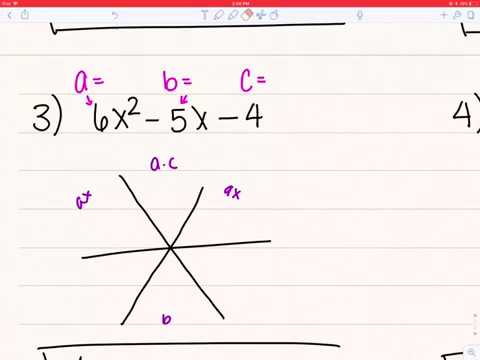 a= b= c=
3) 6x² - 5x - 4
4)
a·c
ax ax
b